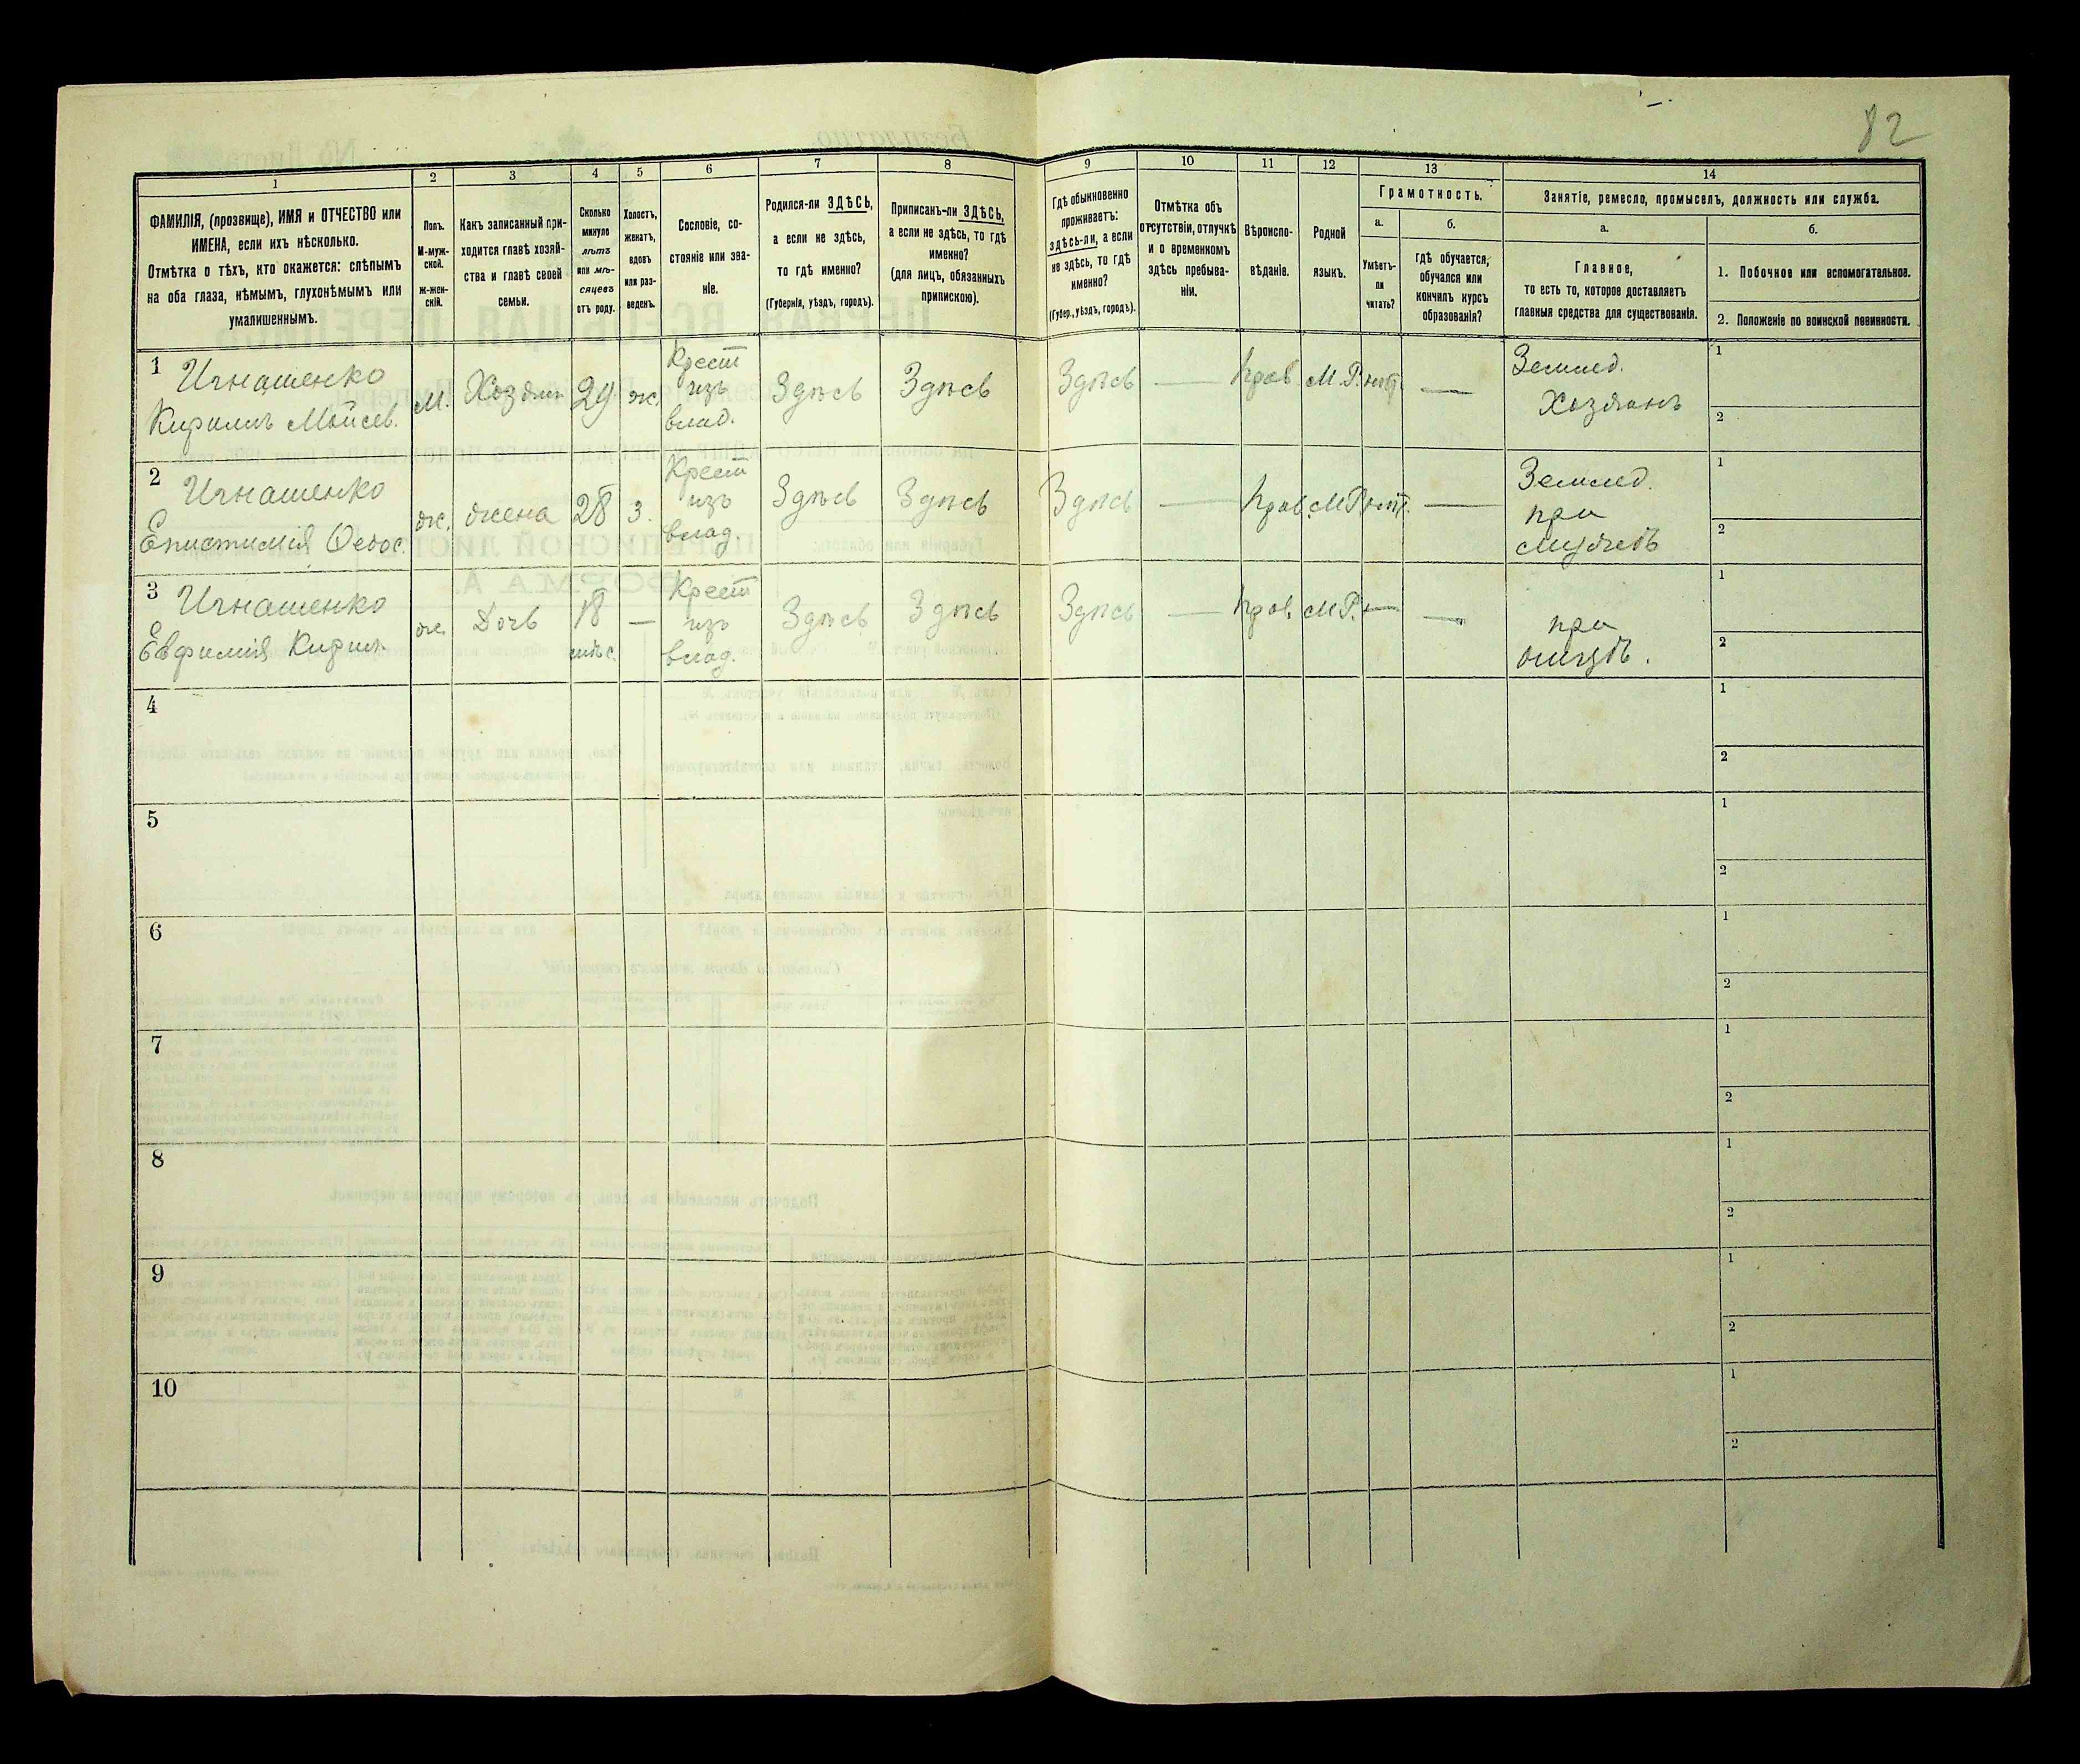 82
1
2
3
4
5
6
7
8
9
10
11
12
13
14
ФАМИЛІЯ, (прозвище), ИМЯ и ОТЧЕСТВО или
ИМЕНА, если ихъ нѣсколько.
Отмѣтка о тѣхъ, кто окажется: слѣпымъ
на оба глаза, нѣмымъ, глухонѣмымъ или
умалишеннымъ.
Полъ.
М-муж-
ской.
Ж-жен-
скій.
Какъ записанный при-
ходится главѣ хозяй-
ства и главѣ своей
семьи.
Сколько
минуло
лѣтъ
или мѣ-
сяцевъ
отъ роду.
Холостъ,
женатъ,
вдовъ
или раз-
веденъ.
Сословіе, со-
стояніе или зва-
ніе.
Родился-ли ЗДѢСЬ,
а если не здѣсь,
то гдѣ именно?
(Губернія, уѣздъ, городъ).
Приписанъ-ли ЗДѢСЬ,
а если не здѣсь, то гдѣ
именно?
(для лицъ, обязанныхъ
припискою).
Гдѣ обыкновенно
проживаетъ:
здѣсь-ли, а если
не здѣсь, то гдѣ
именно?
(Губер., уѣздъ, городъ).
Отмѣтка объ
отсутствіи, отлучкѣ
и о временномъ
здѣсь пребыва-
ніи.
Вѣроиспо-
вѣданіе.
Родной
языкъ.
Грамотность.
а.
б.
Умѣетъ-
ли
читать?
гдѣ обучается,
обучался или
кончилъ курсъ
образованія?
Занятіе, ремесло, промыселъ, должность или служба.
а.
б.
Главное,
то есть то, которое доставляетъ
главныя средства для существованія.
1. Побочное или вспомогательное.
2. Положеніе по воинской повинности.
1
Игнашенко
Кирилъ Мойсев.
М.
Хозяин
29
ж.
Крест
изъ
влад.
Здѣсь
Здѣсь
Здѣсь
—
Прав.
М.Р.
нѣт
—
Землед.
Хозяинъ
1
2
2
Игнашенко
Епистимія Ѳедос.
ж.
жена
28
з.
Крест
изъ
влад.
Здѣсь
Здѣсь
Здѣсь
—
Прав.
М.Р.
нѣт.
—
Землед.
при
мужѣ
1
2
3
Игнашенко
Евфимія Кирил.
ж.
Дочь
18
мѣс.
—
Крест
изъ
влад.
Здѣсь
Здѣсь
Здѣсь
—
Прав.
М.Р.
—
—
при
отцѣ.
1
2
4
1
2
5
1
2
6
1
2
7
1
2
8
1
2
9
1
2
10
1
2